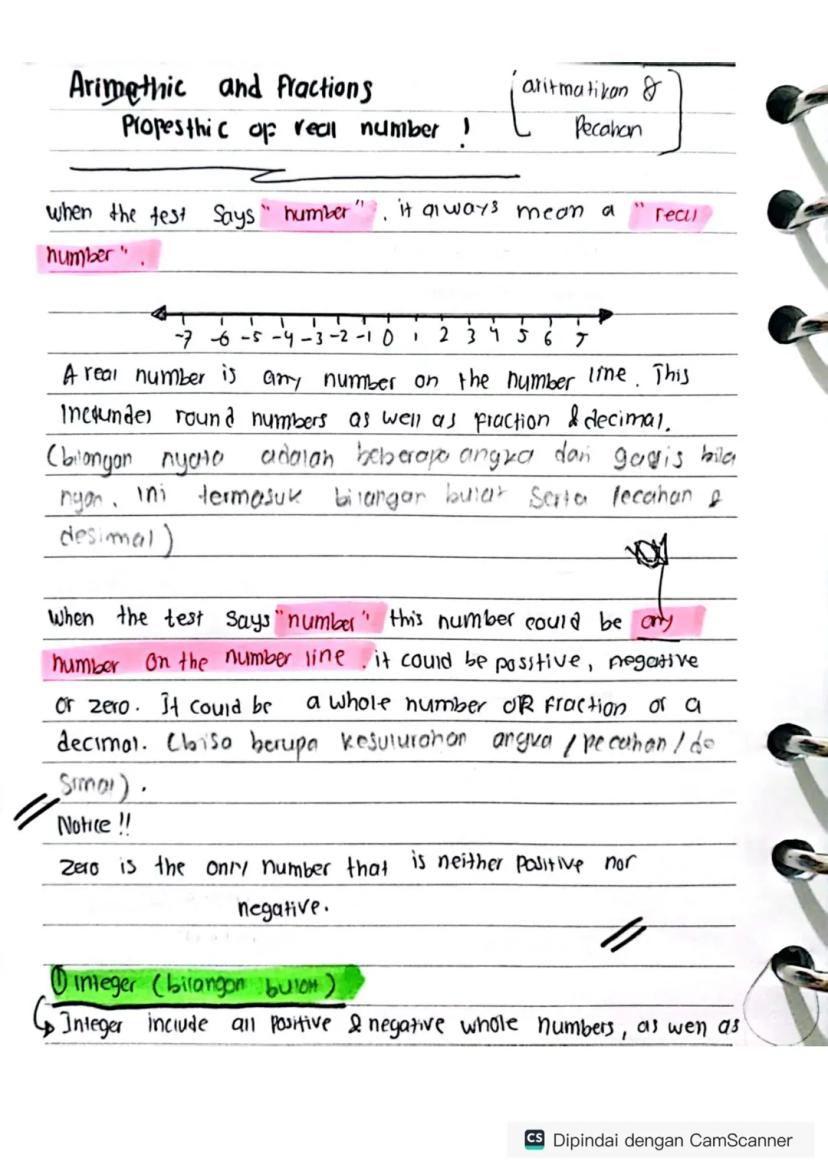 Arimethic and fractions
(aritmatikan &
Pecahan
Propesthic of real number !
When the test Says "number", it always mean a "real
number".
-7 -6 -5 -4 -3 -2 -1 0 1 2 3 4 5 6 7
A real number is any number on the number line. This
round numbers as well as fraction & decimal.
(bilangan nyata adalah beberapa angka dari garis bila
ngan. Ini termasuk bilangan bulat Serta Pecahan &
desimal)
When the test Says "number" this number could be any
number on the number line. it could be positive, negative
or zero. It could be a whole number OR Fraction or a
decimal. (bisa berupa kesuluruhan angka / pecahan / de
Simal).
Notice !!
Zero is the only number that is neither Positive nor
negative.
① Integer (bilangan bulat)
Integer include all Positive & negative whole numbers, as well as
CS Dipindai dengan CamScanner